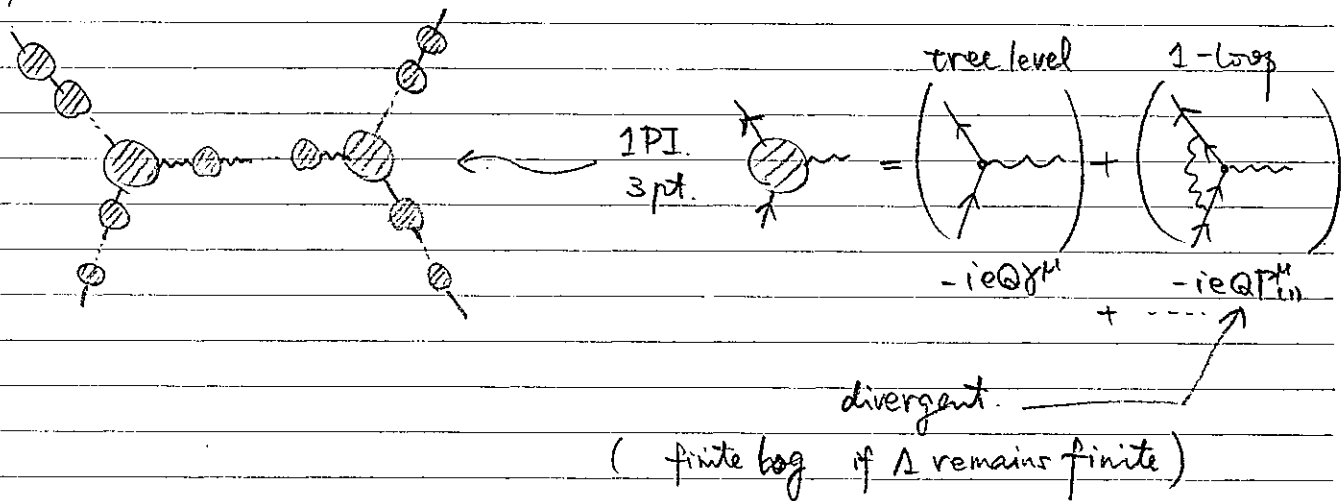 tree level 1-loop
1PI.
3pt. = ( ) + ( )
-ieQγ^μ -ieQΓ^μ_(1)
+ ----
divergent.
( finite log if Λ remains finite )